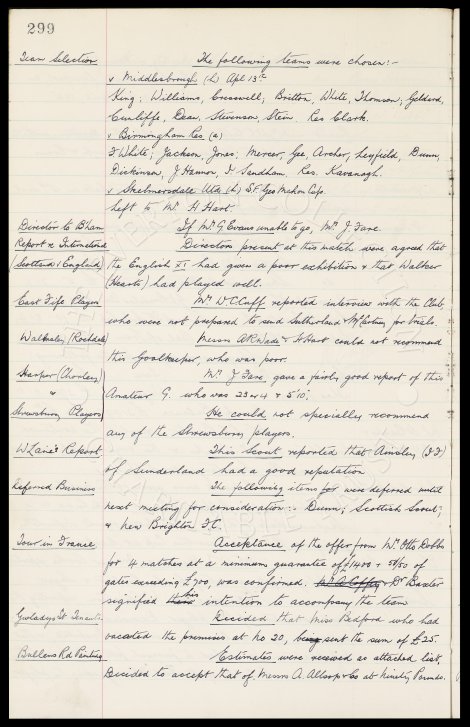 299
Team Selection The following teams were chosen:-
v Middlesbrough (h) Apl 13th
King; Williams, Cresswell, Britton, White, Thomson; Geldard,
Cunliffe, Dean, Stevenson, Stein. Res Clark.
v Birmingham Res. (a)
T White; Jackson, Jones; Mercer, Gee, Archer, Leyfield, Dunn,
Dickinson, J Hannon, T Sandham. Res. Kavanagh.
v Skelmersdale Utd (h) S.F. Geo Mahon Cup.
Left to Mr H Hart
Director to B'ham If Mr G Evans unable to go, Mr J Fare.
Report re International Directors present at this match were agreed that
(Scotland v England) the English XI had given a poor exhibition & that Walker
(Hearts) had played well.
East Fife Player Mr W C Cuff reported interview with the Club,
who were not prepared to send Sutherland & McCartney for trials.
Walmsley (Rochdale) Messrs A R Wade & H Hart could not recommend
this Goalkeeper, who was poor.
Harper (Chorley) Mr J Fare, gave a fairly good report of this
Amateur G. who was 23 or 4 & 5'10".
Shrewsbury Players He could not specially recommend
any of the Shrewsbury players.
W Lane's Report This Scout reported that Ainsley (I.F)
of Sunderland had a good reputation
Deferred Business The following items for were deferred until
next meeting for consideration:- Dunn; Scottish Scout;
& New Brighton F.C.
Tour in France Acceptance of the offer from Mr Otto
for 4 matches at a minimum guarantee of £1400 & 50/50 of
gates exceeding £700, was confirmed. Mr A Coffey Dr Baxter
signified his intention to accompany the team
Gwladys St Tenants Decided that Miss Bedford who had
vacated the premises at No 20, be sent the sum of £25.
Bullens Rd Painting Estimates were received as attached list,
Decided to accept that of Messrs A. Allsop & Co at Ninety Pounds.